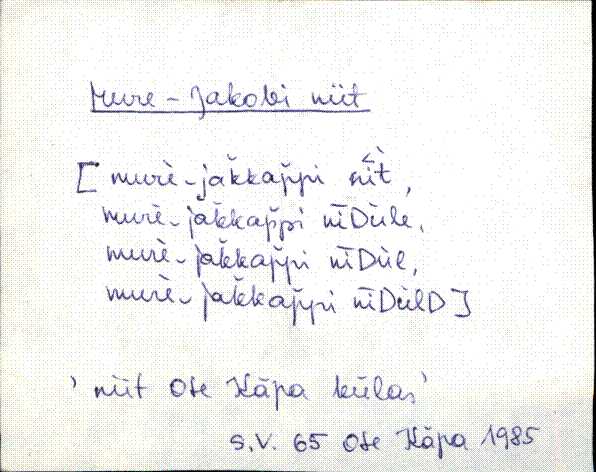 Mure-Jakobi niit
[murè-jak̆kap̆pi nīt̀,
murè-jak̆kap̆pi nīDùle,
murè-jak̆kap̆pi nīDùl,
murè-jak̆kap̆pi nīDùlD]
'niit Ote Kāpa külas'
S.V. 65 Ote Kāpa 1985